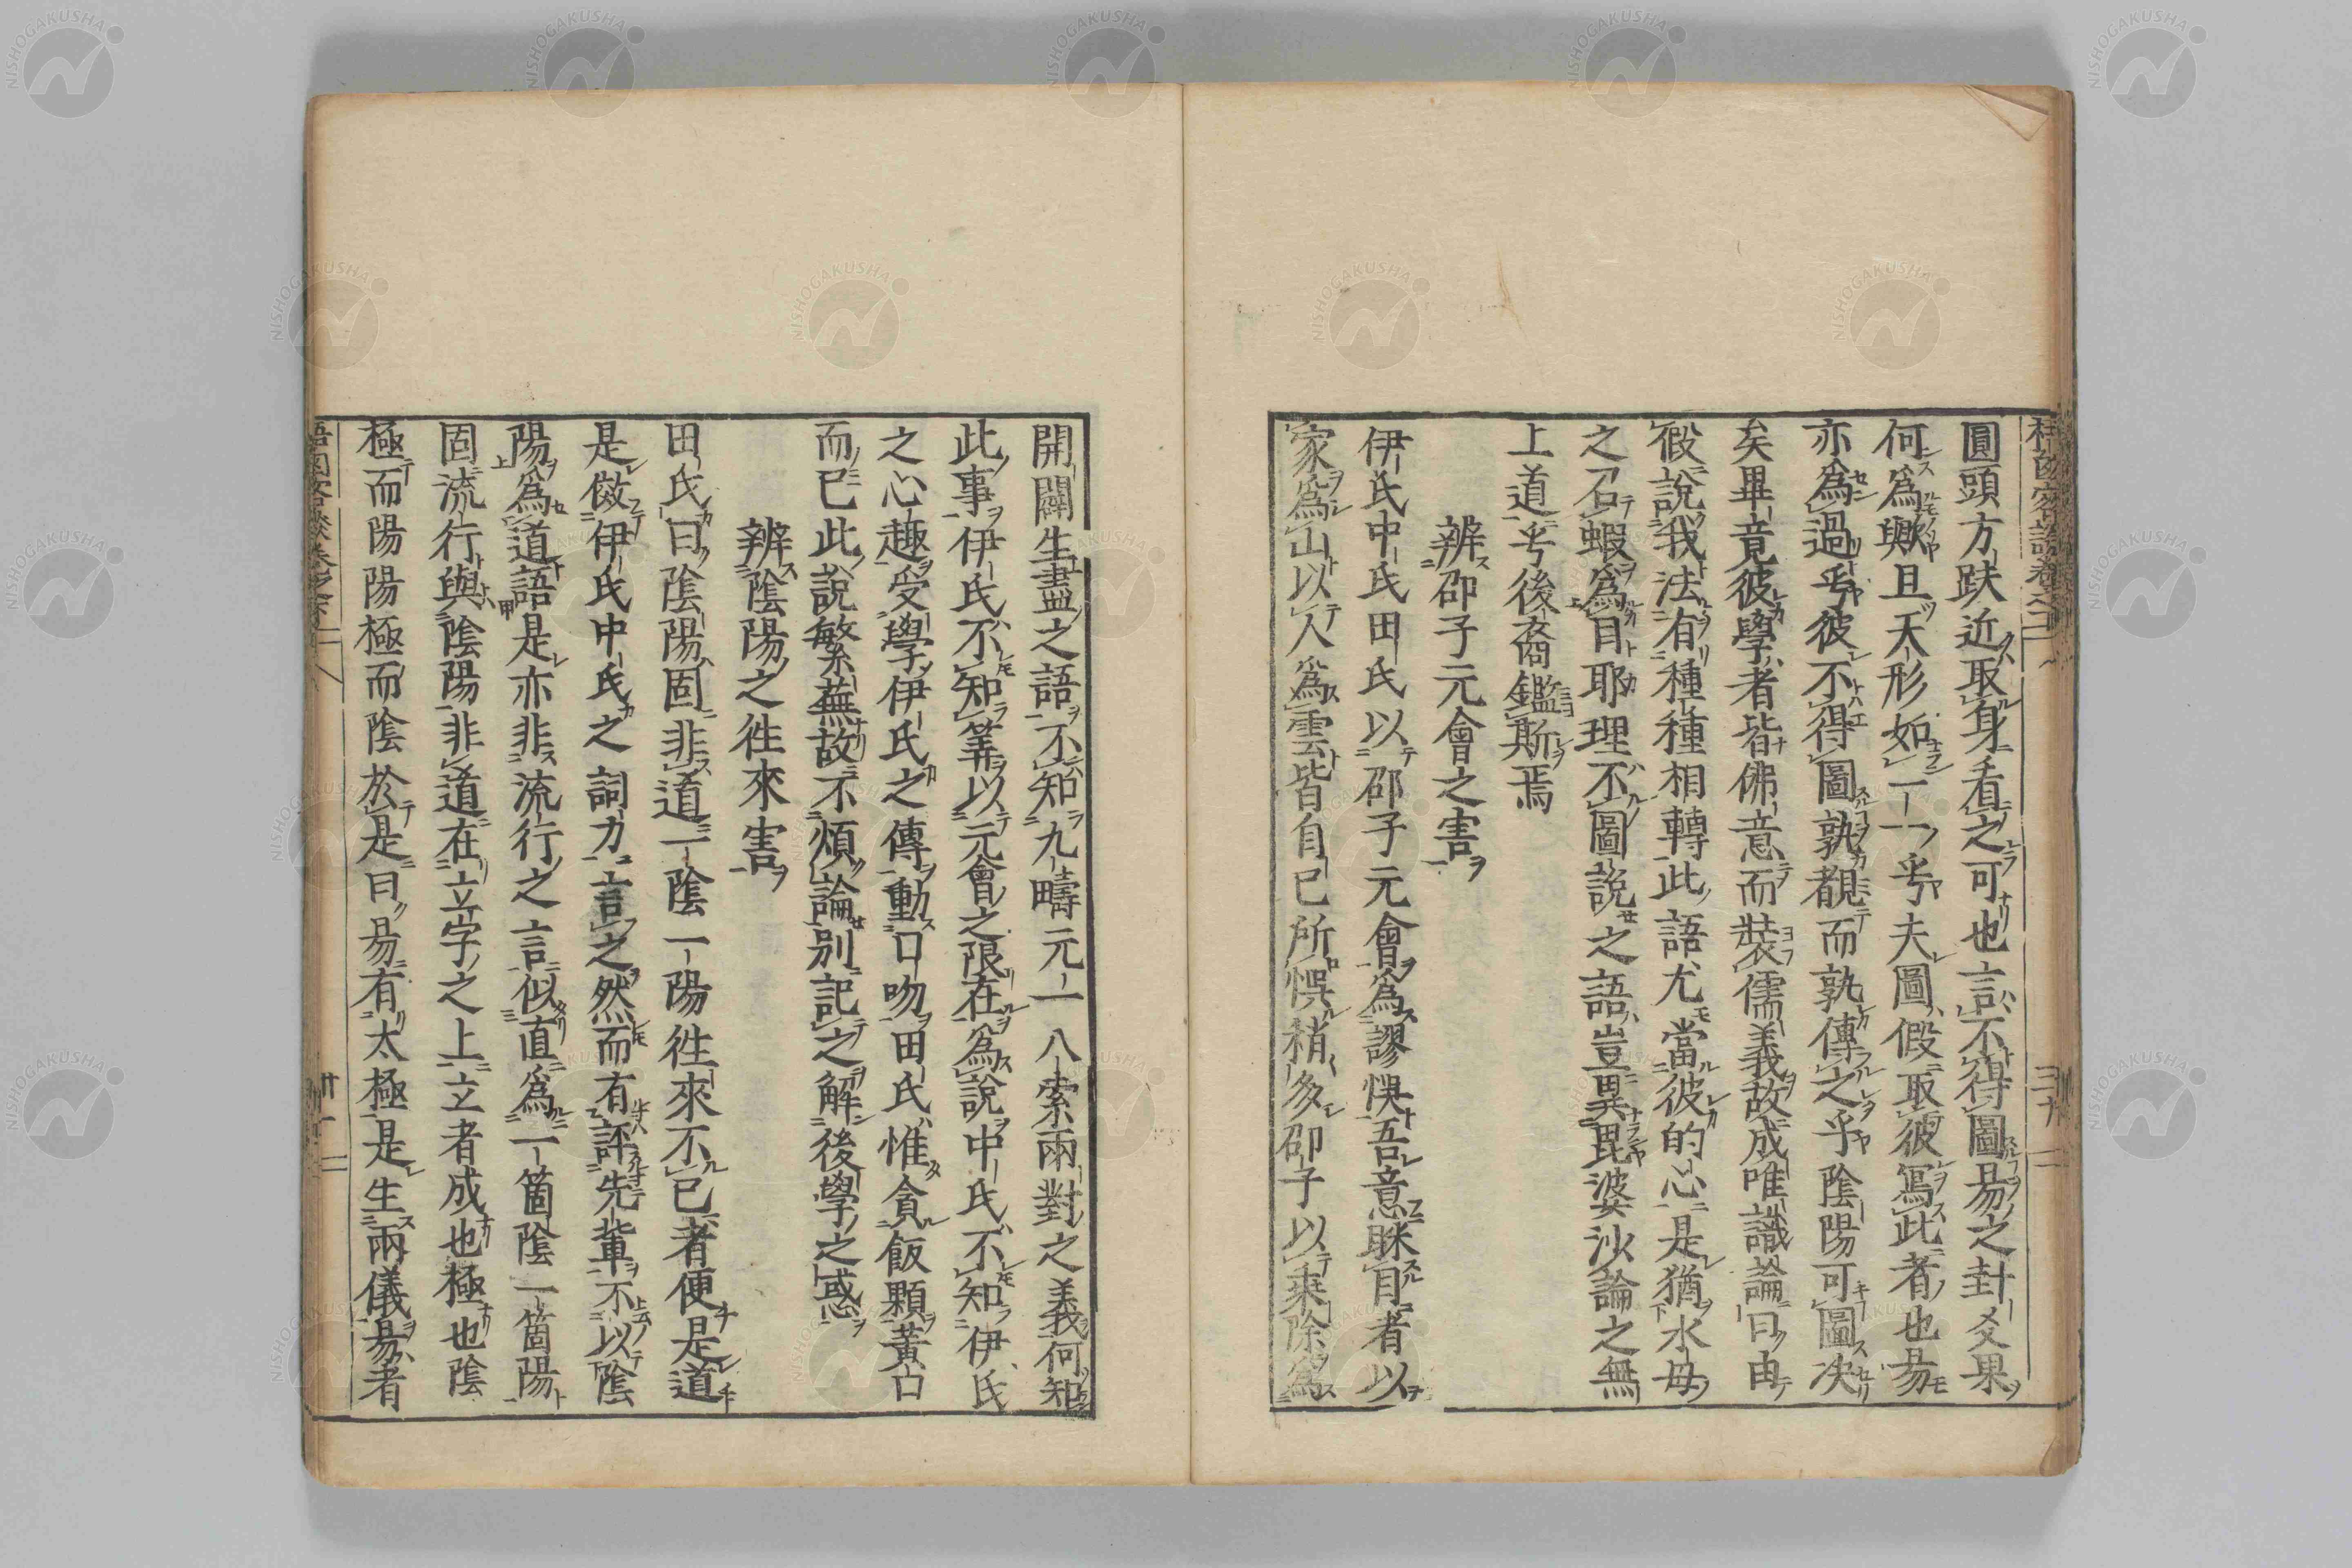 圓頭方趺近取身看之可也言不得圖昜之卦爻果
何爲歟且天形如一一乎夫圖假取彼寫此者也昜
亦爲過乎彼不得圖孰覩而孰傳之乎陰陽可圖决
矣畢竟彼學者皆佛意而裝儒義故成唯識論曰由
假說我法有種種相轉此語尤當彼的心是猶水母
之召蝦爲目耶理不圖說之語豈異毘婆沙論之無
上道乎後裔鑑斯焉
辨邵子元會之害
伊氏中氏田氏以邵子元會爲謬悞吾意眯目者以
家爲山以人爲雲皆自己所悞稍多邵子以乘除爲
開闢生盡之語不知九疇元一八索兩對之義何知
此事伊氏不知筭以元會之限在爲說中氏不知伊氏
之心趣受學伊氏之傳動口吻田氏惟貪飯顆黃口
而已此說繁蕪故不煩論別記之解後學之惑
辨陰陽之徃來害
田氏曰陰陽固非道一陰一陽徃來不已者便是道
是倣伊氏中氏之詞力言之然而有評先輩不以陰
陽爲道語是亦非流行之言似直爲一箇陰一箇陽
固流行與陰陽非道在立字之上立者成也極也陰
極而陽陽極而陰於是曰昜有太極是生兩儀昜者